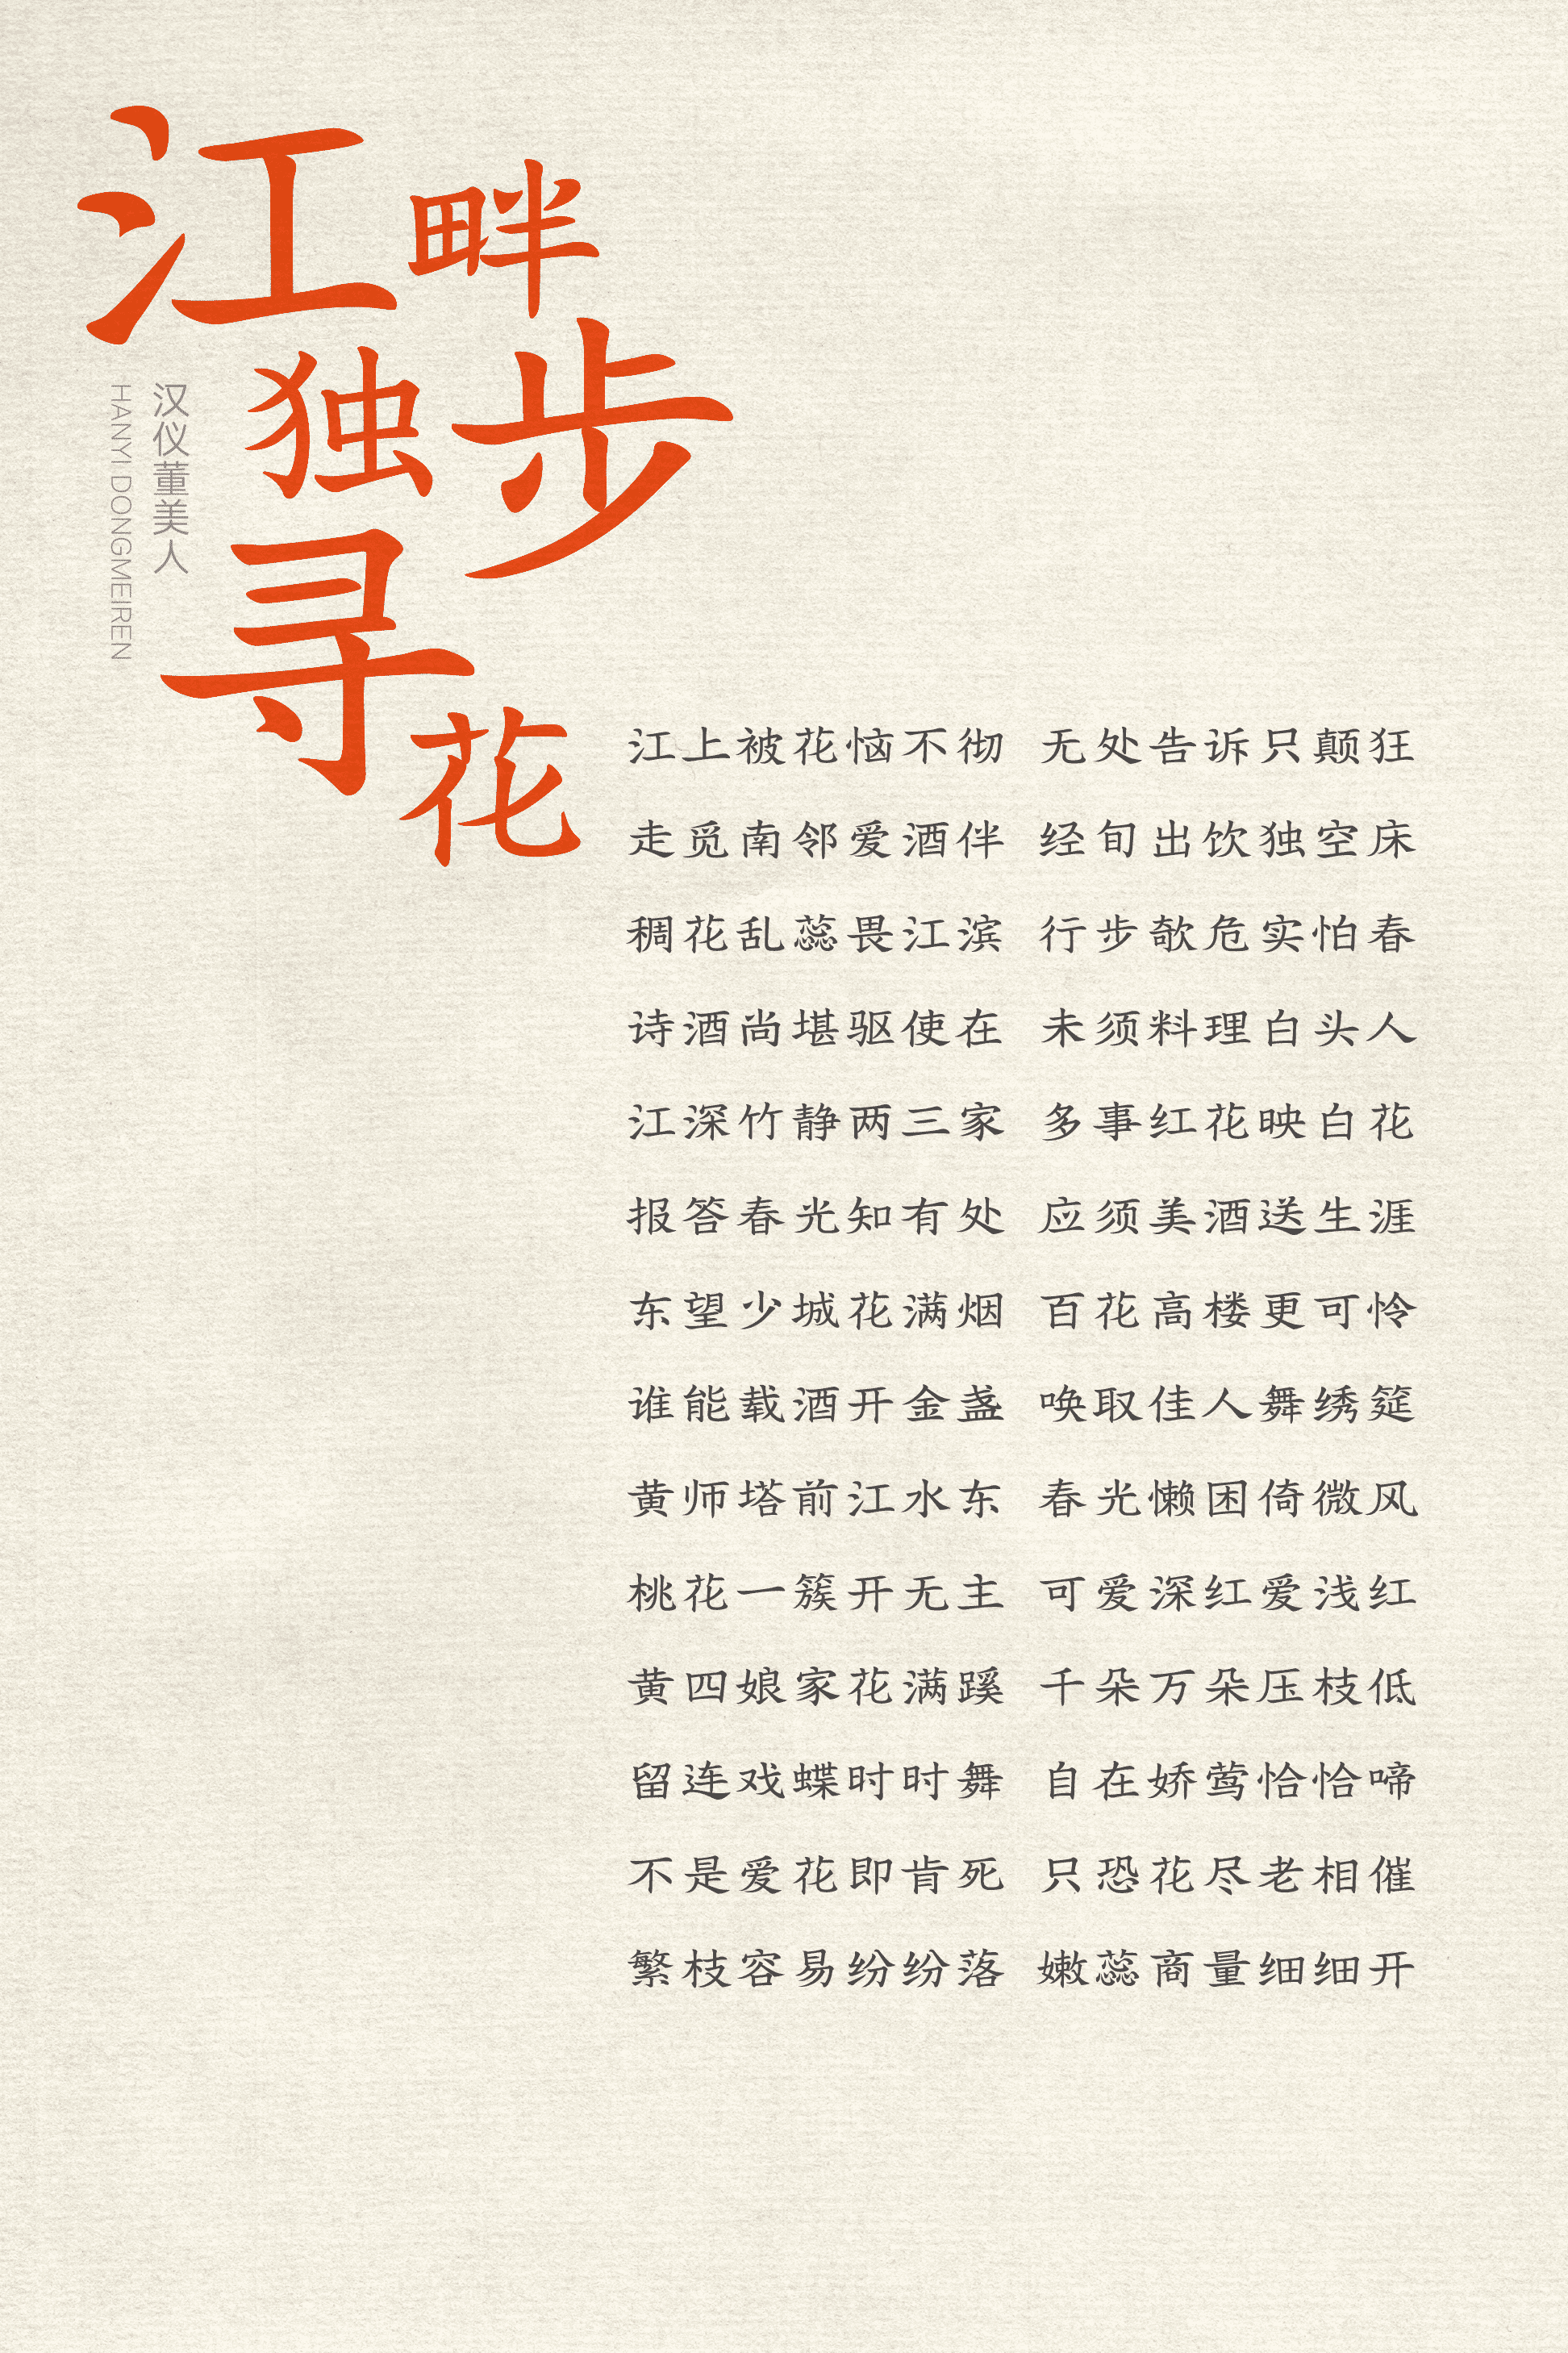 江畔
独步
寻
花
汉仪董美人
HANYI DONGMEIREN
江上被花恼不彻 无处告诉只颠狂
走觅南邻爱酒伴 经旬出饮独空床
稠花乱蕊畏江滨 行步欹危实怕春
诗酒尚堪驱使在 未须料理白头人
江深竹静两三家 多事红花映白花
报答春光知有处 应须美酒送生涯
东望少城花满烟 百花高楼更可怜
谁能载酒开金盏 唤取佳人舞绣筵
黄师塔前江水东 春光懒困倚微风
桃花一簇开无主 可爱深红爱浅红
黄四娘家花满蹊 千朵万朵压枝低
留连戏蝶时时舞 自在娇莺恰恰啼
不是爱花即肯死 只恐花尽老相催
繁枝容易纷纷落 嫩蕊商量细细开